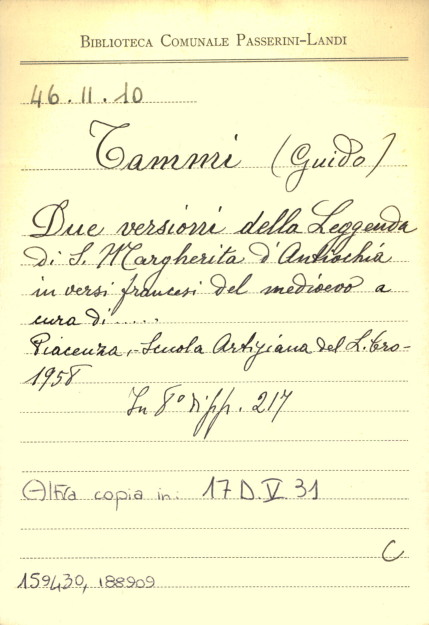 BIBLIOTECA COMUNALE PASSERINI-LANDI
46.II.10
Tammi (Guido)
Due versioni della Leggenda
di S. Margherita d'Antiochia
in versi francesi del medioevo a
cura di.....
Piacenza,-Scuola Artigiana del Libro-
1958
In 8° di pp. 217
Altra copia in: 17 D.V 31
C
159430, 188909